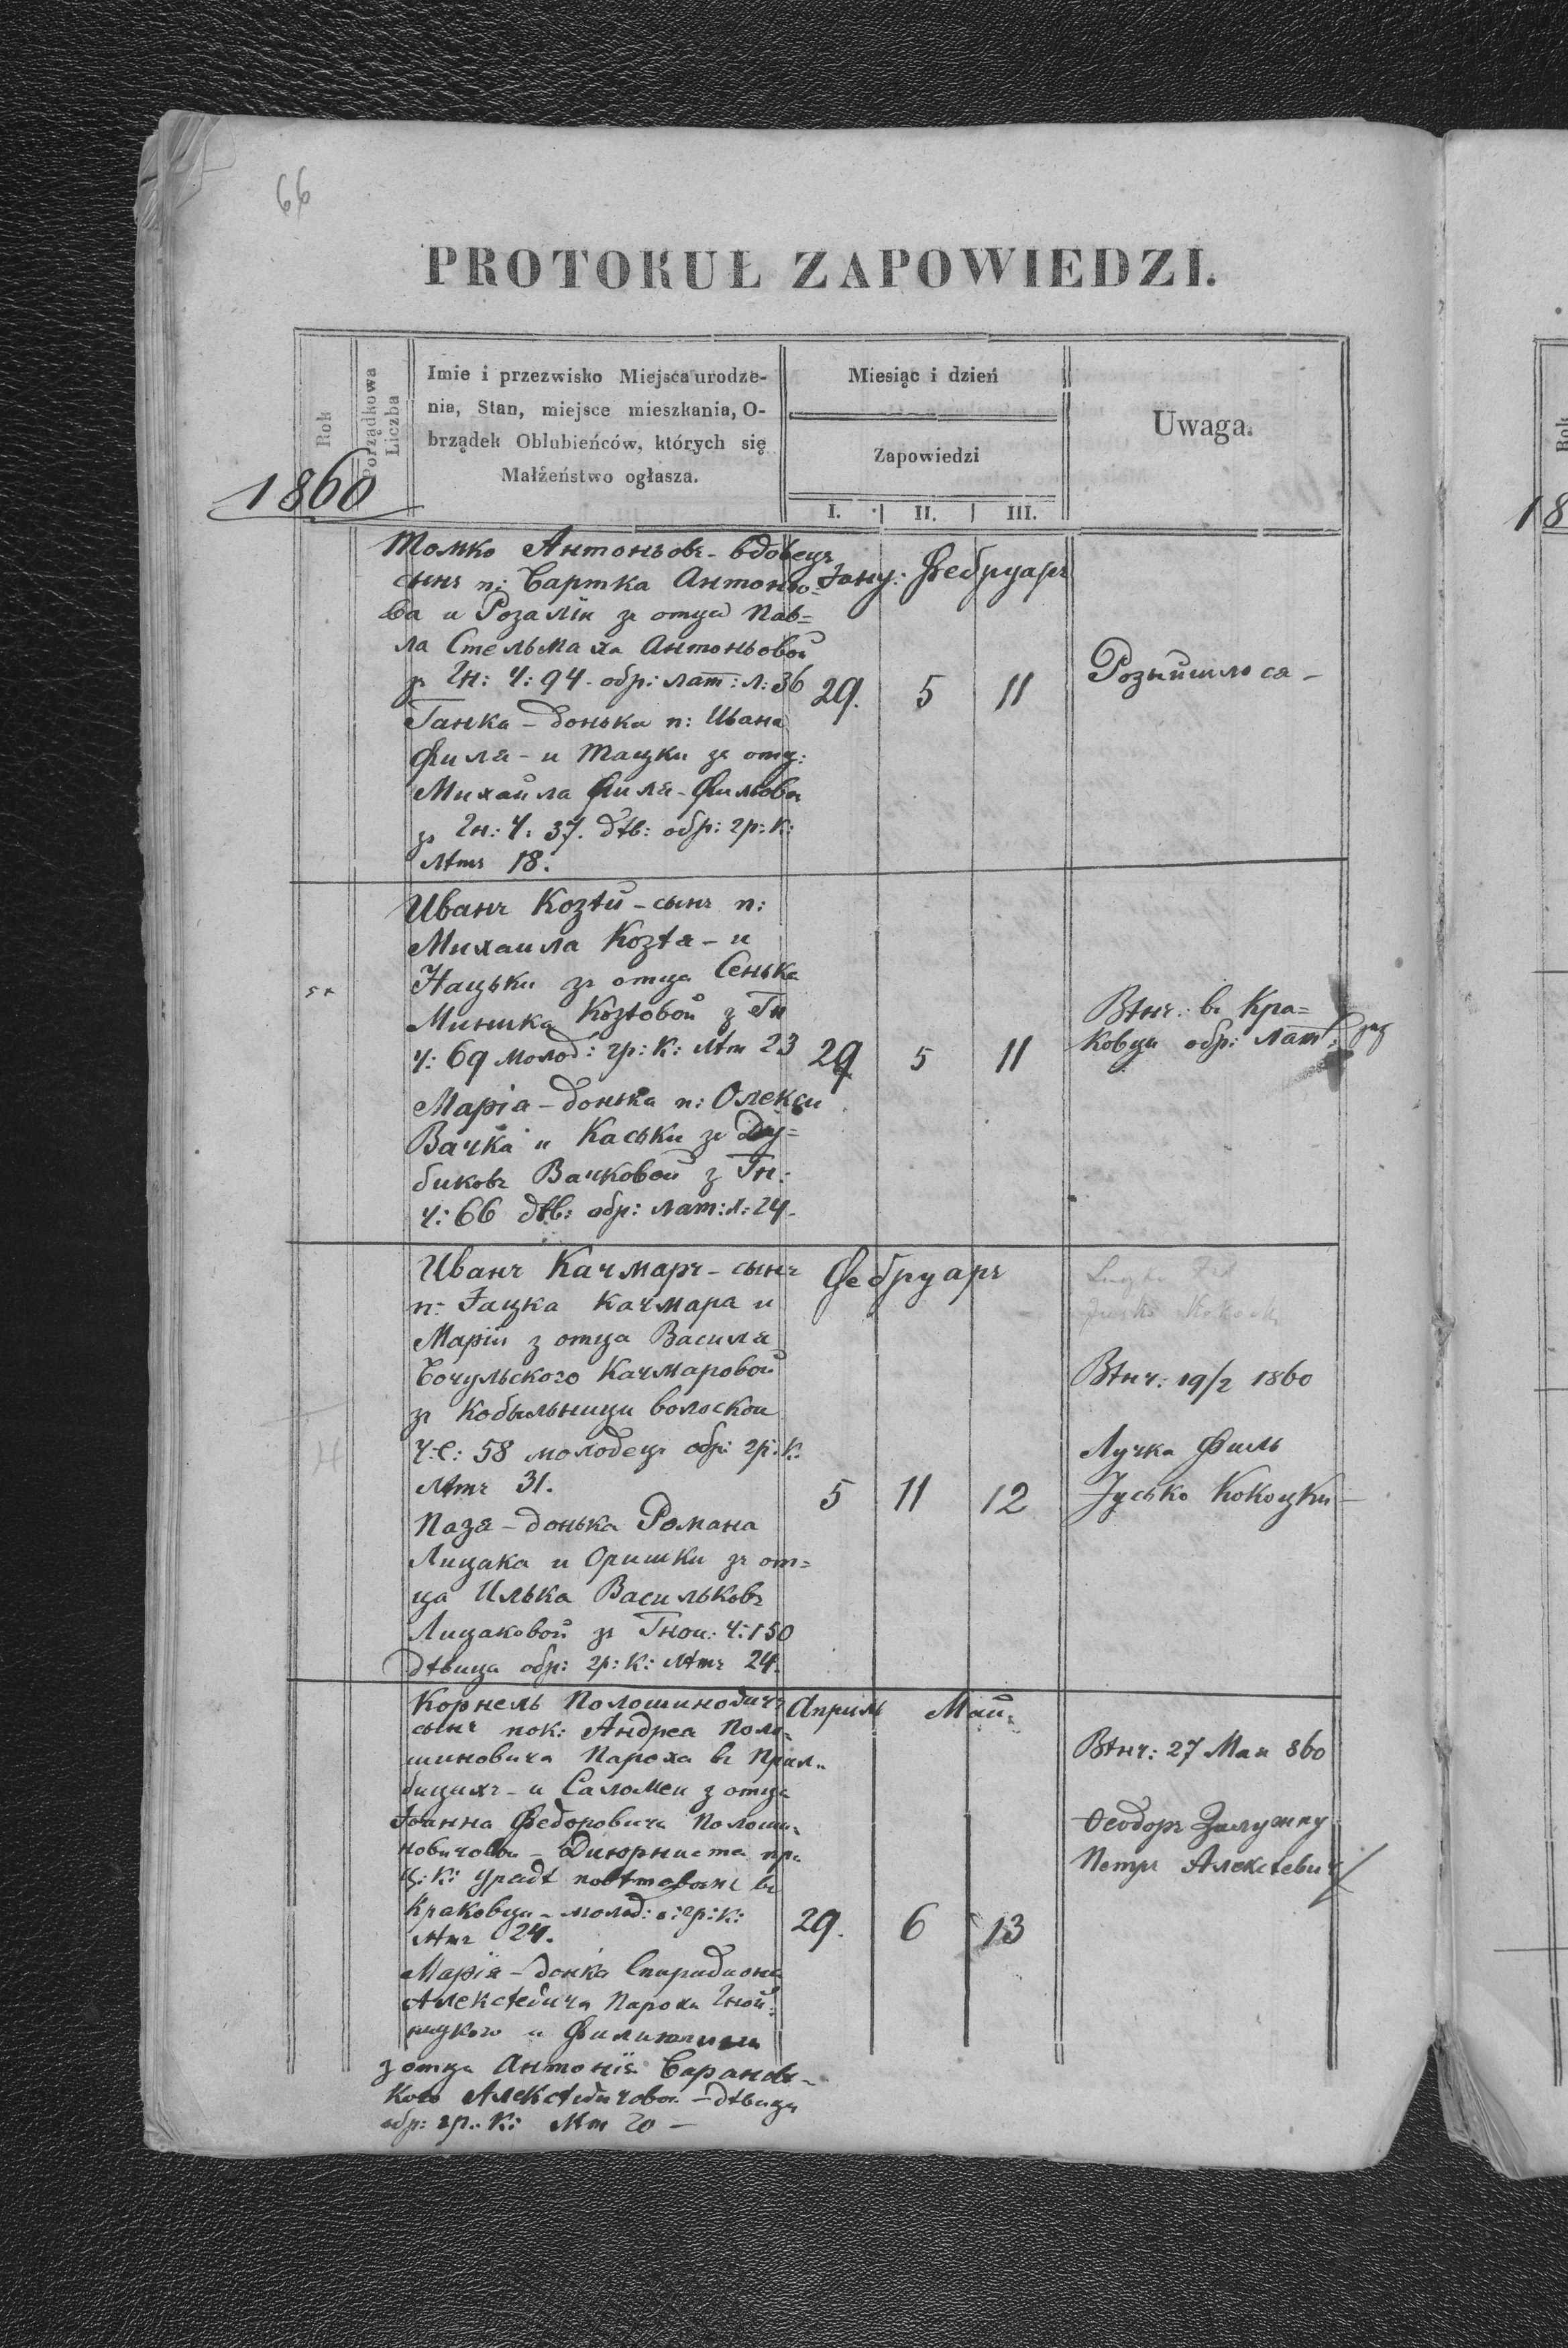 66
PROTOKUŁ ZAPOWIEDZI.
Rok
Porządkowa Liczba
Imie i przezwisko Miejsca urodze-
nia, Stan, miejsce mieszkania, O-
brządek Oblubieńców, których się
Małżeństwo ogłasza.
Miesiąc i dzień
Zapowiedzi
I. II. III.
Uwaga.
1860
Томко Антоньовъ - вдовецъ
сынъ п: Бартка Антоньо-
ва и Розаліи зъ отца Пав=
ла Стельмаха Антоньовой
зъ Гн: Ч: 94 - обр: лат: л: 36
Ганка - донька п: Ивана
Филя - и Тацки зъ отц:
Михайла Филя - Фильовои
зъ Гн: Ч: 37. дѣв: обр: гр: к:
лѣтъ 18.
Iану: Фебруаръ
29. 5 11
Розыйшло ся -
Иванъ Козѣй - сынъ п:
Михаила Козѣя - и
Нацьки зъ отца Сенька
Миника Козѣовой з Гн
ч: 69 молод: гр: к: лѣт 23
Маріа - донька п: Олексы
Вачка и Каськи зъ Ду=
биковъ Вачковой з Гн:
ч: 66 дѣв: обр: лат: л: 24.
29 5 11
Вѣнч: въ Кра=
ковци обр: лат:
Иванъ Качмаръ - сынъ
п: Iацка Качмара и
Маріи з отца Василя
Бочульского Качмаровой
зъ Кобыльници волоскои
Ч: С: 58 молодецъ обр: гр: к:
лѣтъ 31.
Пазя - донька Романа
Лицака и Оришки зъ от=
ца Илька Васильковъ
Лицаковой зъ Гнои: Ч: 150
дѣвица обр: гр: к: лѣтъ 24.
Фебруаръ
5 11 12
Вѣнч: 19/2 1860
Лучка Филь
Iуско Кокоцки
Корнель Полошиновичъ
сынъ пок: Андреа Поло-
шиновича Пароха въ Прил-
бицихъ - и Саломеи з отца
Iоанна Федоровича Полоши-
новичовои - Диюрниста при
Ц: К: урядѣ повѣтовомъ въ
Краковци - молод: о: гр: к:
лѣтъ 24.
Марія - донка Спиридиона
Алексѣевича Пароха Гной-
ницкого и
з отца Антонія Барановс-
кого Алексѣевичовои - дѣвица
обр: гр: к: лѣт 20 -
Априль Май
29. 6 13
Вѣнч: 27 Мая 860
Ѳеодоръ Залужну
Петръ Алексѣевич